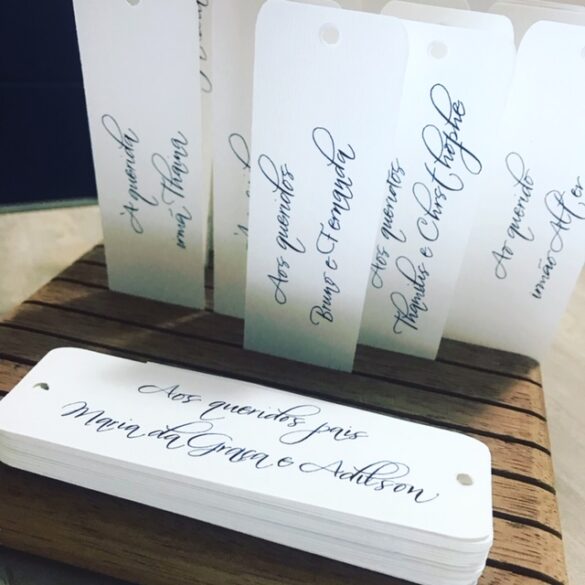 À querida
irmã Thaina
Aos queridos
Bruno e Fernanda
Aos queridos
Thamilis e Christhophe
Ao querido
irmão
Aos queridos pais
Maria da Graça e Adilson